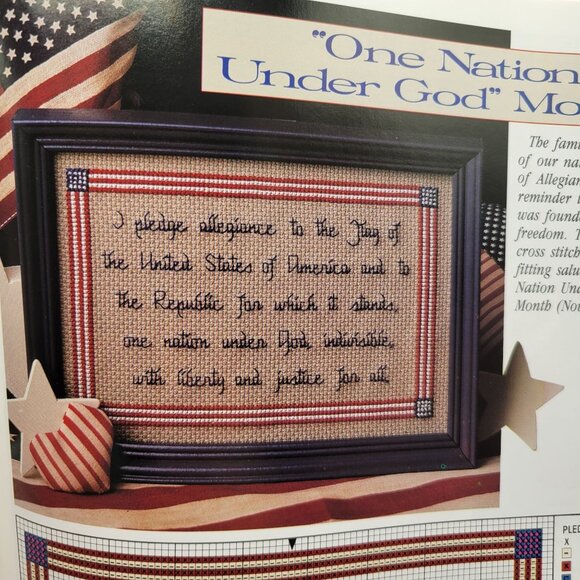 "One Nation
Under God" Mo
The fami
of our na
of Allegian
reminder
was found
freedom. T
cross stitch
fitting salu
Nation Und
Month (Nov
I pledge allegiance to the Flag of
the United States of America and to
the Republic for which it stands,
one nation under God, indivisible,
with liberty and justice for all.
PLED
X